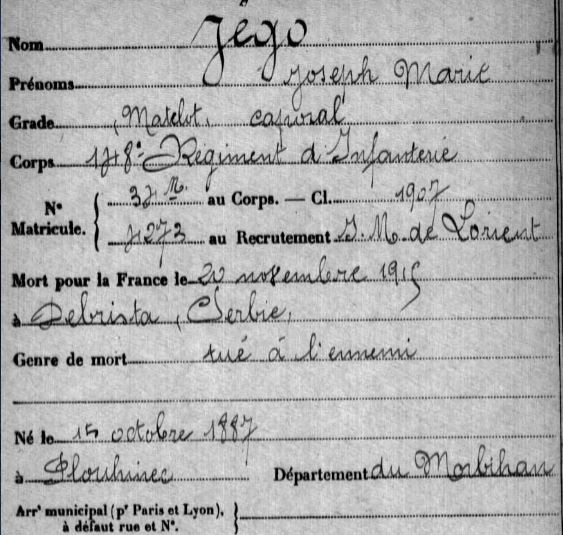 Nom Jégo
Prénoms Joseph Marie
Grade (Matelot) caporal
Corps 148e Régiment d'Infanterie
N° Matricule. { 37 M. au Corps. — Cl. 1907
7273 au Recrutement I. M. de Lorient
Mort pour la France le 20 novembre 1915
à Debrista, Serbie,
Genre de mort tué à l'ennemi
Né le 15 octobre 1887
à Plouhinec Département du Morbihan
Arrt municipal (pr Paris et Lyon),
à défaut rue et N°. }